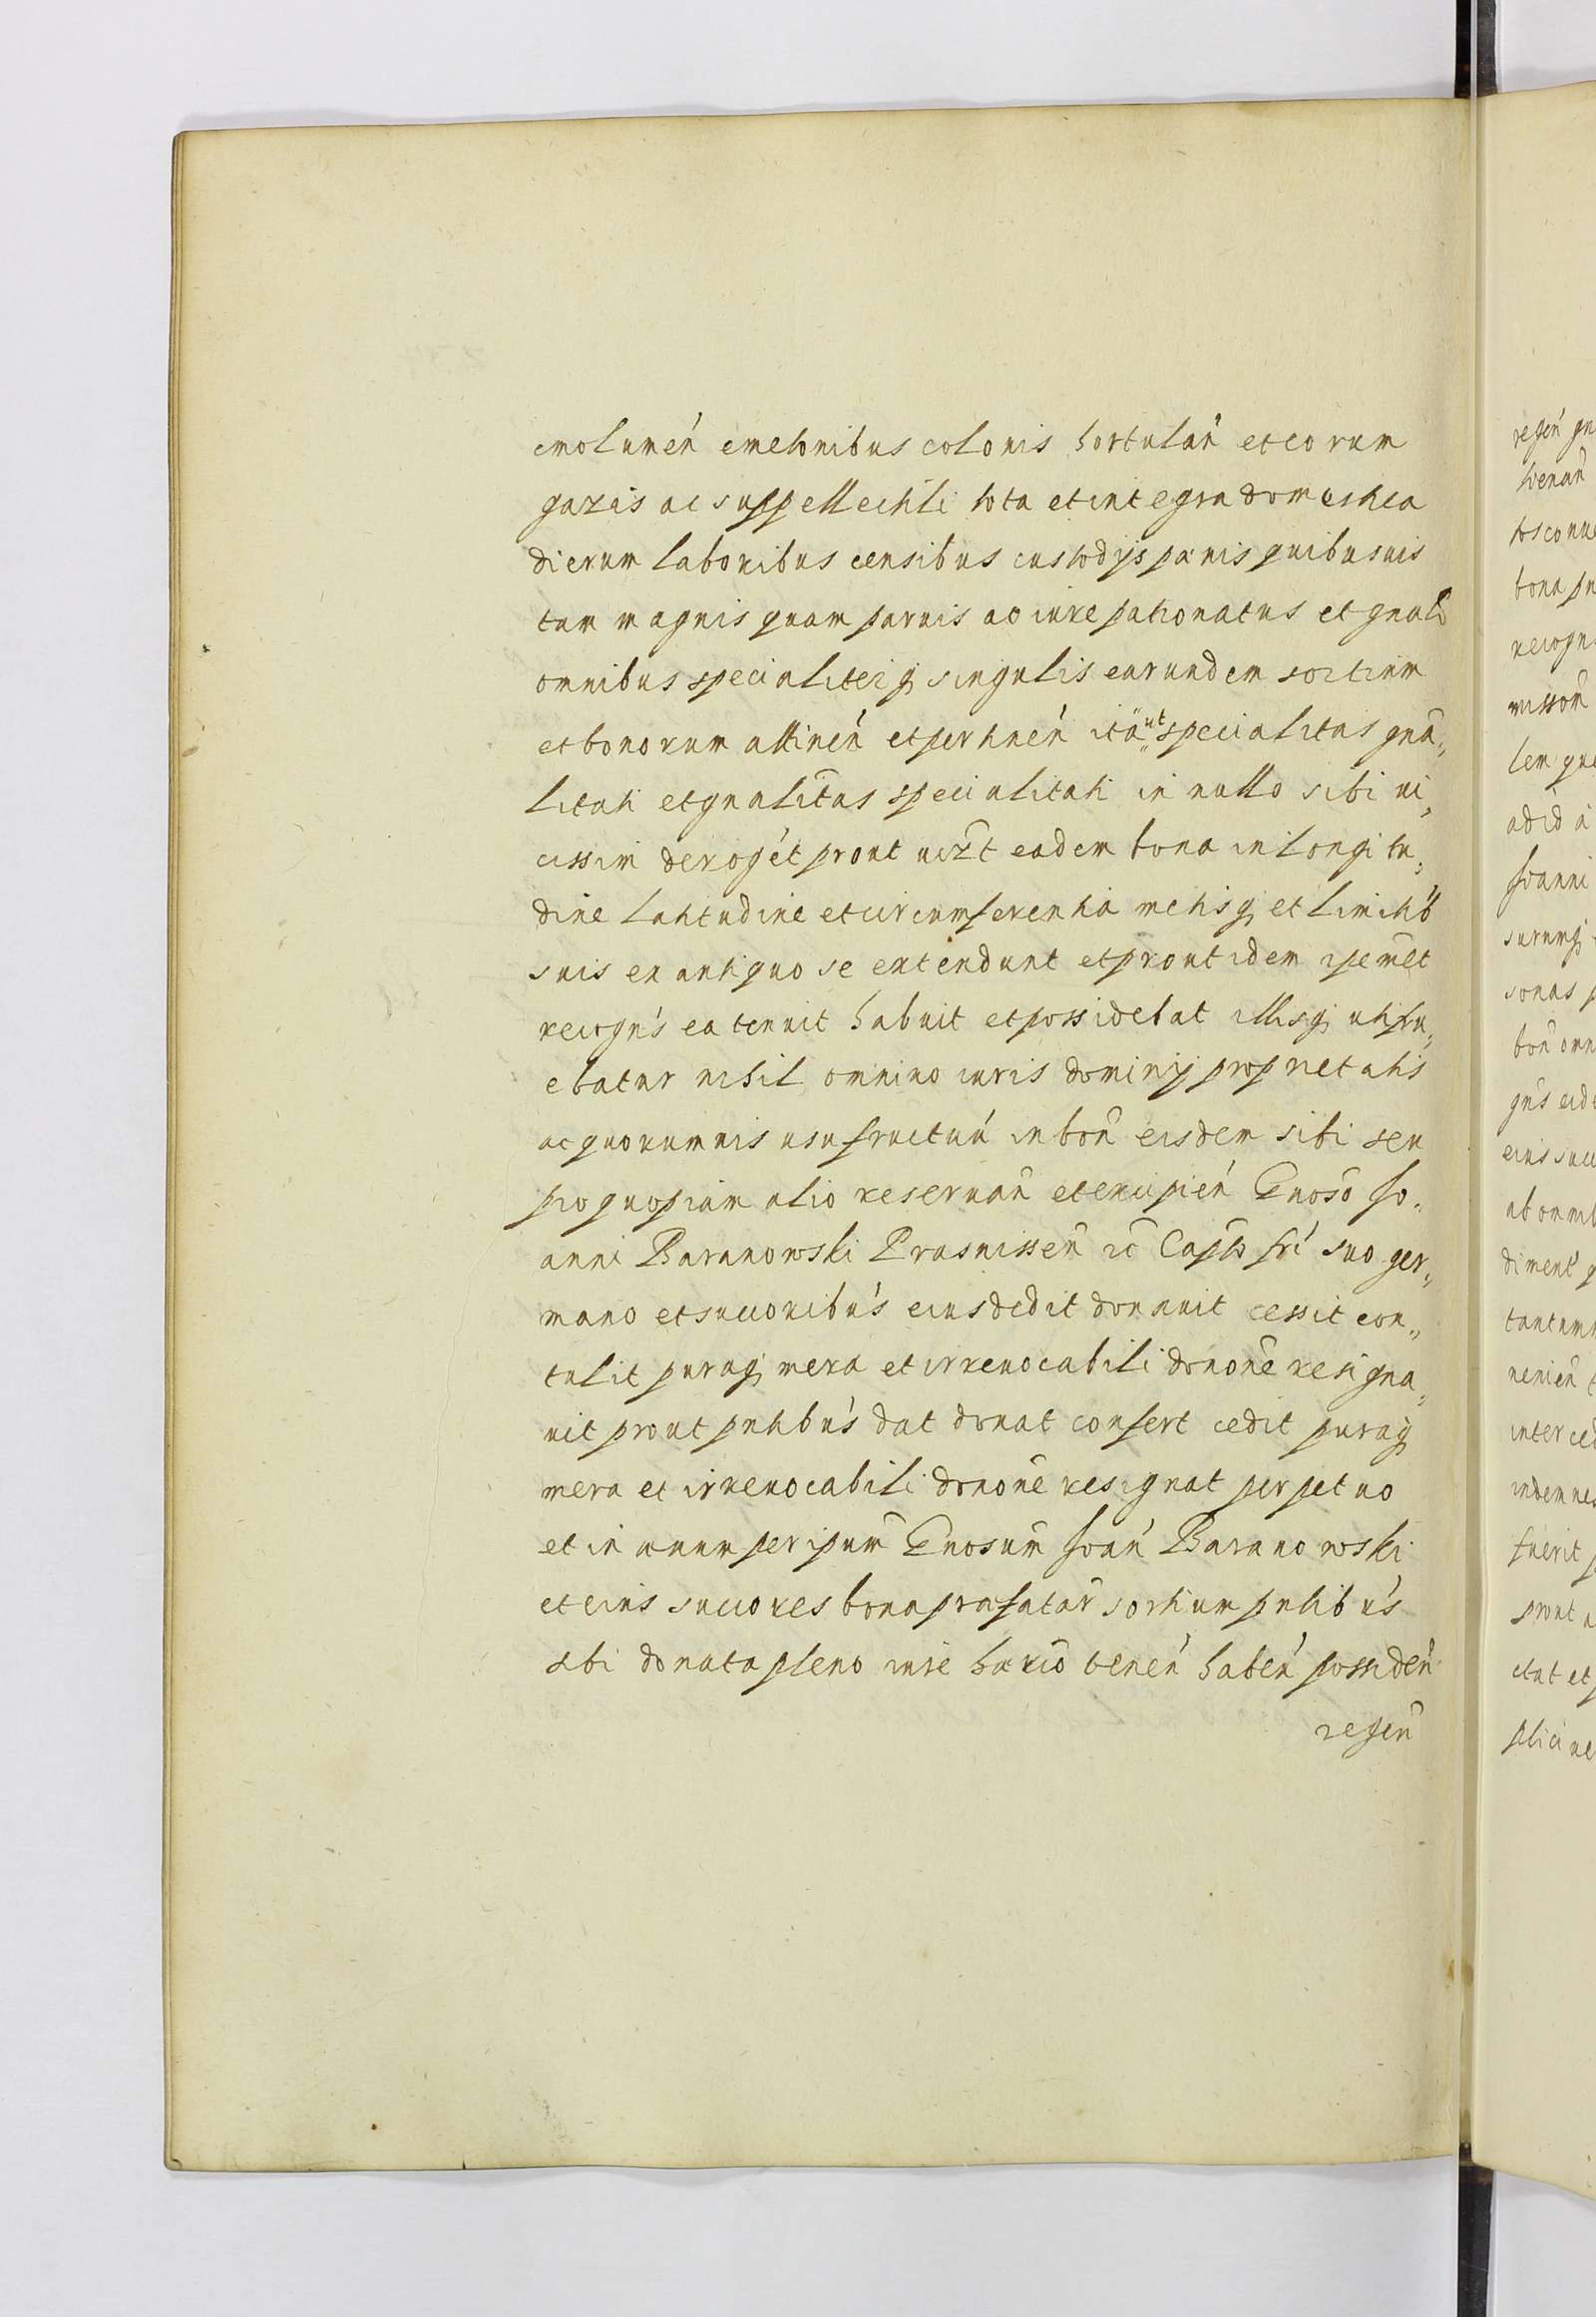 emolumeń cmetonibus colonis hortulan̄ et eorum
gazis ac suppellectili tota et integra domestica
dierum laboribus censibus custodijs pænis quibusuis
tam magnis quam paruis ac iure patronatus et gnalr̄
omnibus specialiterq; singulis earundem sortium
et bonorum attineń et pertineń ita ut specialitas gnā„
litati et gnalit̄as specialitati in nullo sibi ui„
cissim derogét prout uiz̄t eadem bona in longitu„
dine latitudine et circumferentia metisq; et limitib9
suis ex antiquo se extendunt et prout idem ipem̄et
recogn̄s ea tenuit habuit et possidebat illisq; utifru„
ebatur nihil omnino iuris dominij proprietatis
ac quorumuis usufructuū in bon̄ eisdem sibi seu
pro quopiam alio reseruan̄ et excipień Gnoso Jo„
anni Baranowski Prasnissen̄ ꝛc̄ Capto fri suo ger„
mano et succoribús eius dedit donauit cessit con„
tulit puraq; mera et irreuocabili donone resigna„
uit prout pntibús dat donat confert cedit puraq;
mera et irreuocabili donone resignat perpetuo
et in æuum per ipum̄ Gnosum̄ Joań Baranowski
et eius succores bona præfatar̄ sortium pntibús
sibi donata pleno iure hærio teneń habeń possideń
regen̄